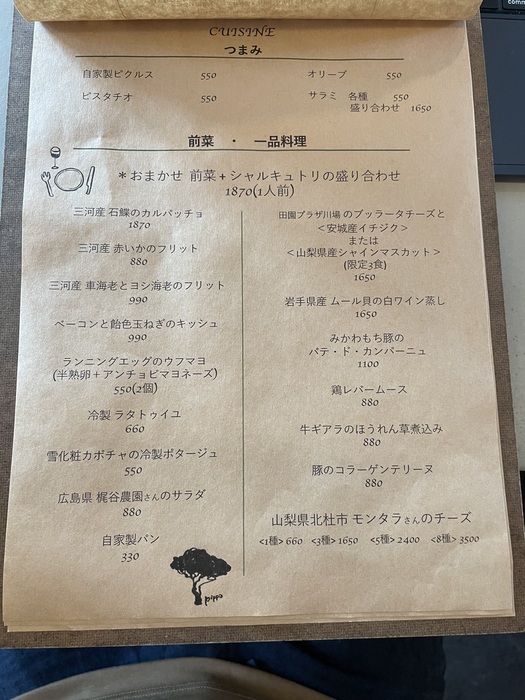 CUISINE
つまみ
自家製ピクルス 550
オリーブ 550
ピスタチオ 550
サラミ 各種 550
盛り合わせ 1650
前菜 ・ 一品料理
＊おまかせ 前菜+シャルキュトリの盛り合わせ
1870(1人前)
三河産 石鰈のカルパッチョ
1870
三河産 赤いかのフリット
880
三河産 車海老とヨシ海老のフリット
990
ベーコンと飴色玉ねぎのキッシュ
990
ランニングエッグのウフマヨ
(半熟卵+アンチョビマヨネーズ)
550(2個)
冷製 ラタトゥイユ
660
雪化粧カボチャの冷製ポタージュ
550
広島県 梶谷農園さんのサラダ
880
自家製パン
330
田園プラザ川場 のブッラータチーズと
<安城産イチジク>
または
<山梨県産シャインマスカット>
(限定3食)
1650
岩手県産 ムール貝の白ワイン蒸し
1650
みかわもち豚の
パテ・ド・カンパーニュ
1100
鶏レバームース
880
牛ギアラのほうれん草煮込み
880
豚のコラーゲンテリーヌ
880
山梨県北杜市 モンタラさんのチーズ
<1種> 660 <3種> 1650 <5種> 2400 <8種> 3500
pippo